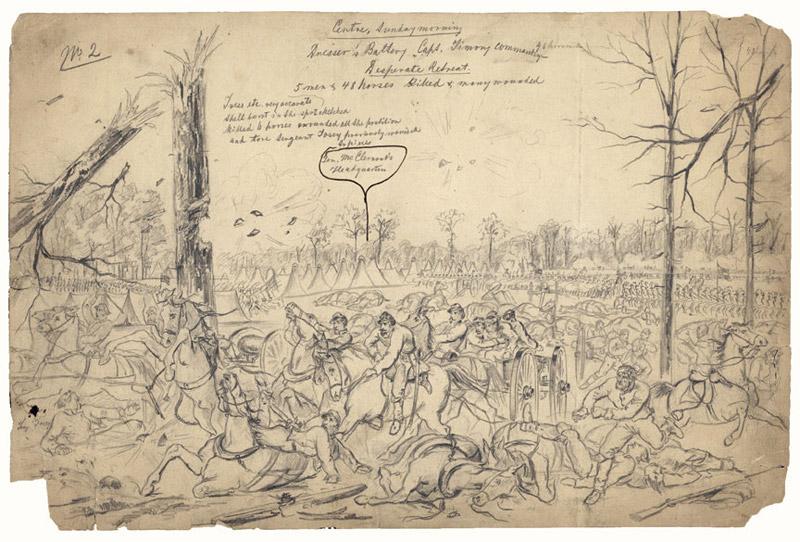 No 2
Centre, Sunday morning
Dresser's Battery Capt. Timony commanding
Desperate Retreat.
5 men & 48 horses killed & many wounded
Trees etc. very accurate
shell burst in the spot sketched
killed 6 horses wounded all the
and tore Sergeant Tosey previously wounded
to pieces
Gen. McClernand's
Headquarters